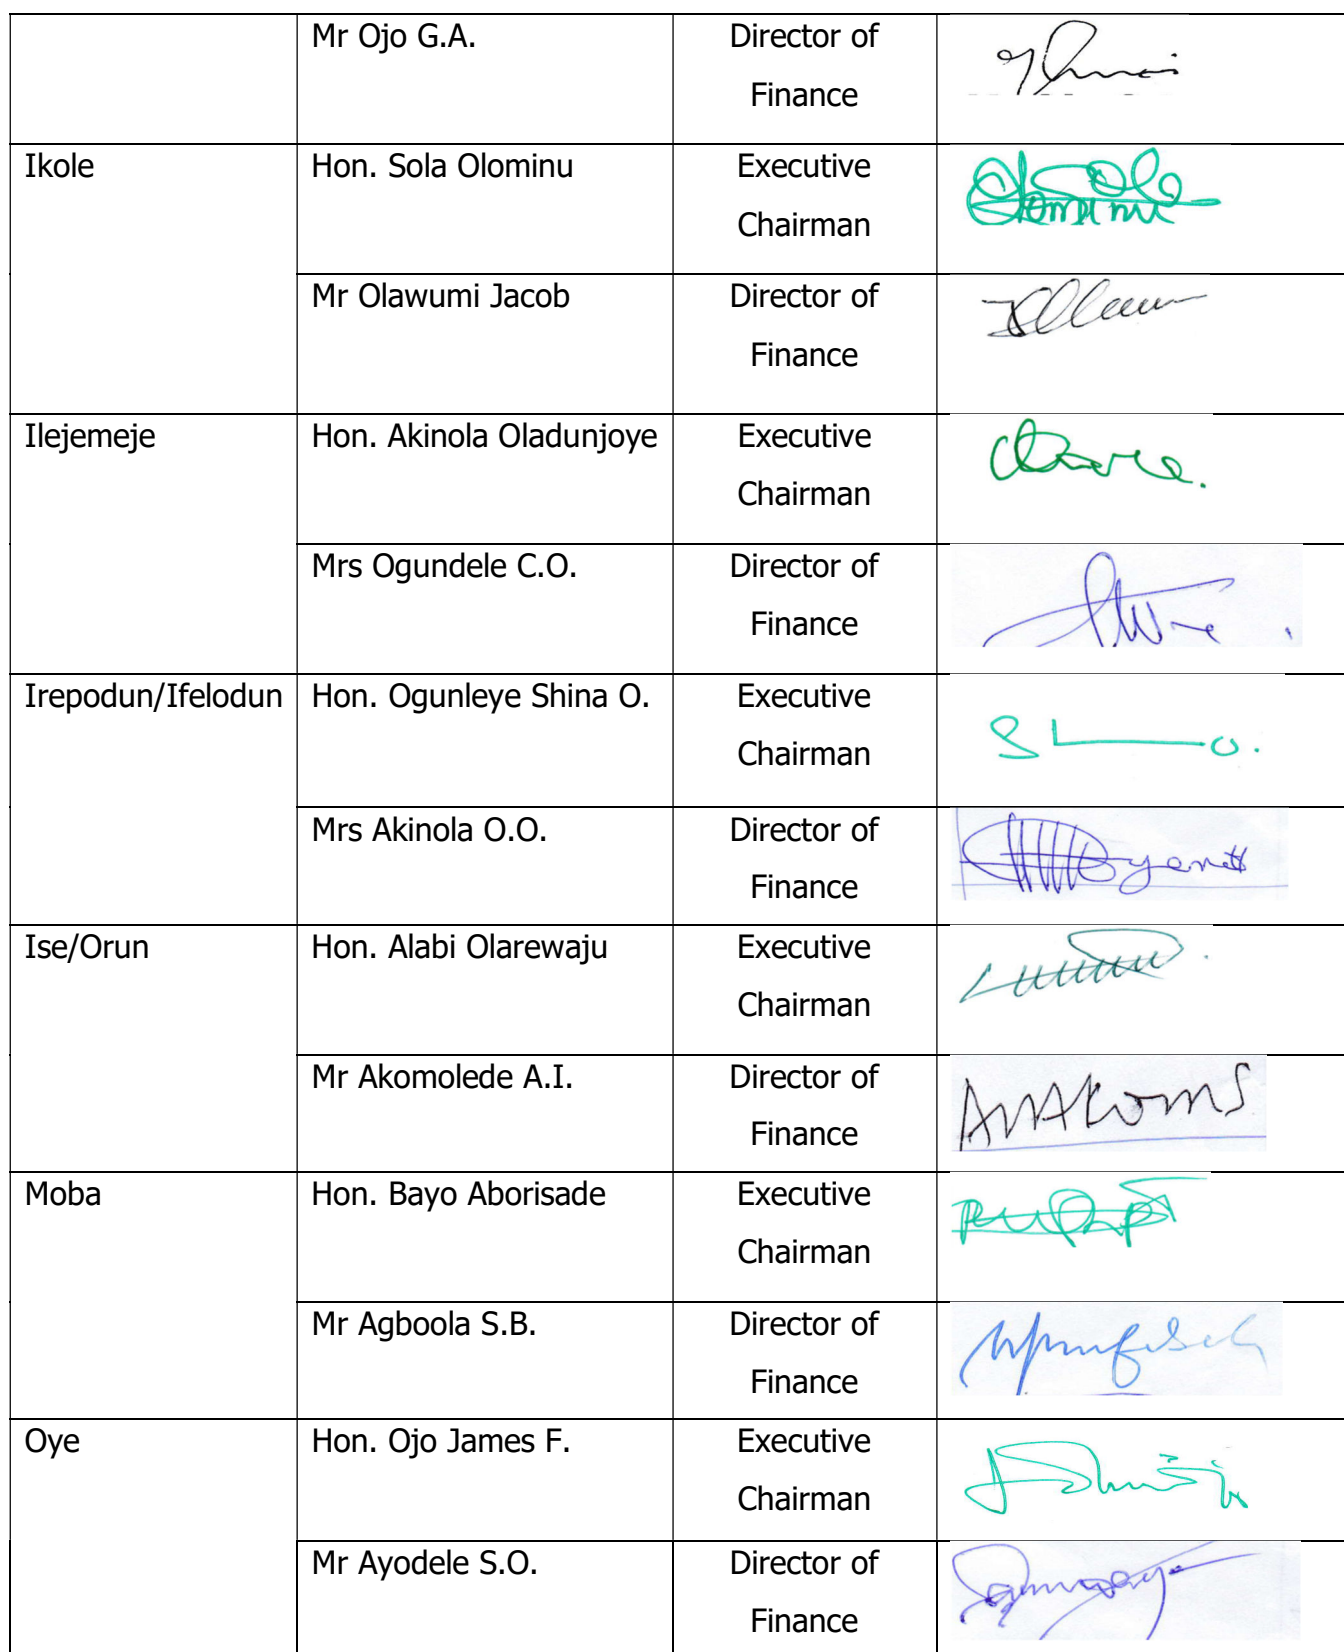 Mr Ojo G.A. Director of
Finance
Ikole Hon. Sola Olominu Executive
Chairman
Mr Olawumi Jacob Director of
Finance
Ilejemeje Hon. Akinola Oladunjoye Executive
Chairman
Mrs Ogundele C.O. Director of
Finance
Irepodun/Ifelodun Hon. Ogunleye Shina O. Executive
Chairman
Mrs Akinola O.O. Director of
Finance
Ise/Orun Hon. Alabi Olarewaju Executive
Chairman
Mr Akomolede A.I. Director of
Finance
Moba Hon. Bayo Aborisade Executive
Chairman
Mr Agboola S.B. Director of
Finance
Oye Hon. Ojo James F. Executive
Chairman
Mr Ayodele S.O. Director of
Finance